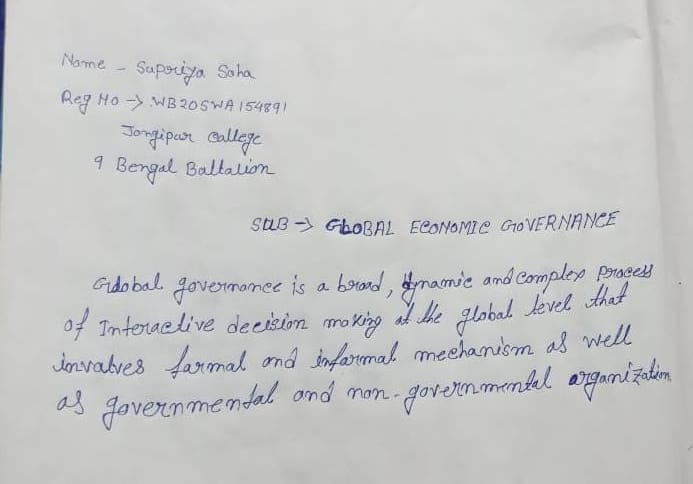 Name - Supriya Saha
Reg No -> WB20SWA154891
Jangipur College
9 Bengal Battalion
SUB -> GLOBAL ECONOMIC GOVERNANCE
Global governance is a broad, dynamic and complex process
of Interactive decision making at the global level that
involves formal and informal mechanism as well
as governmental and non-governmental organization